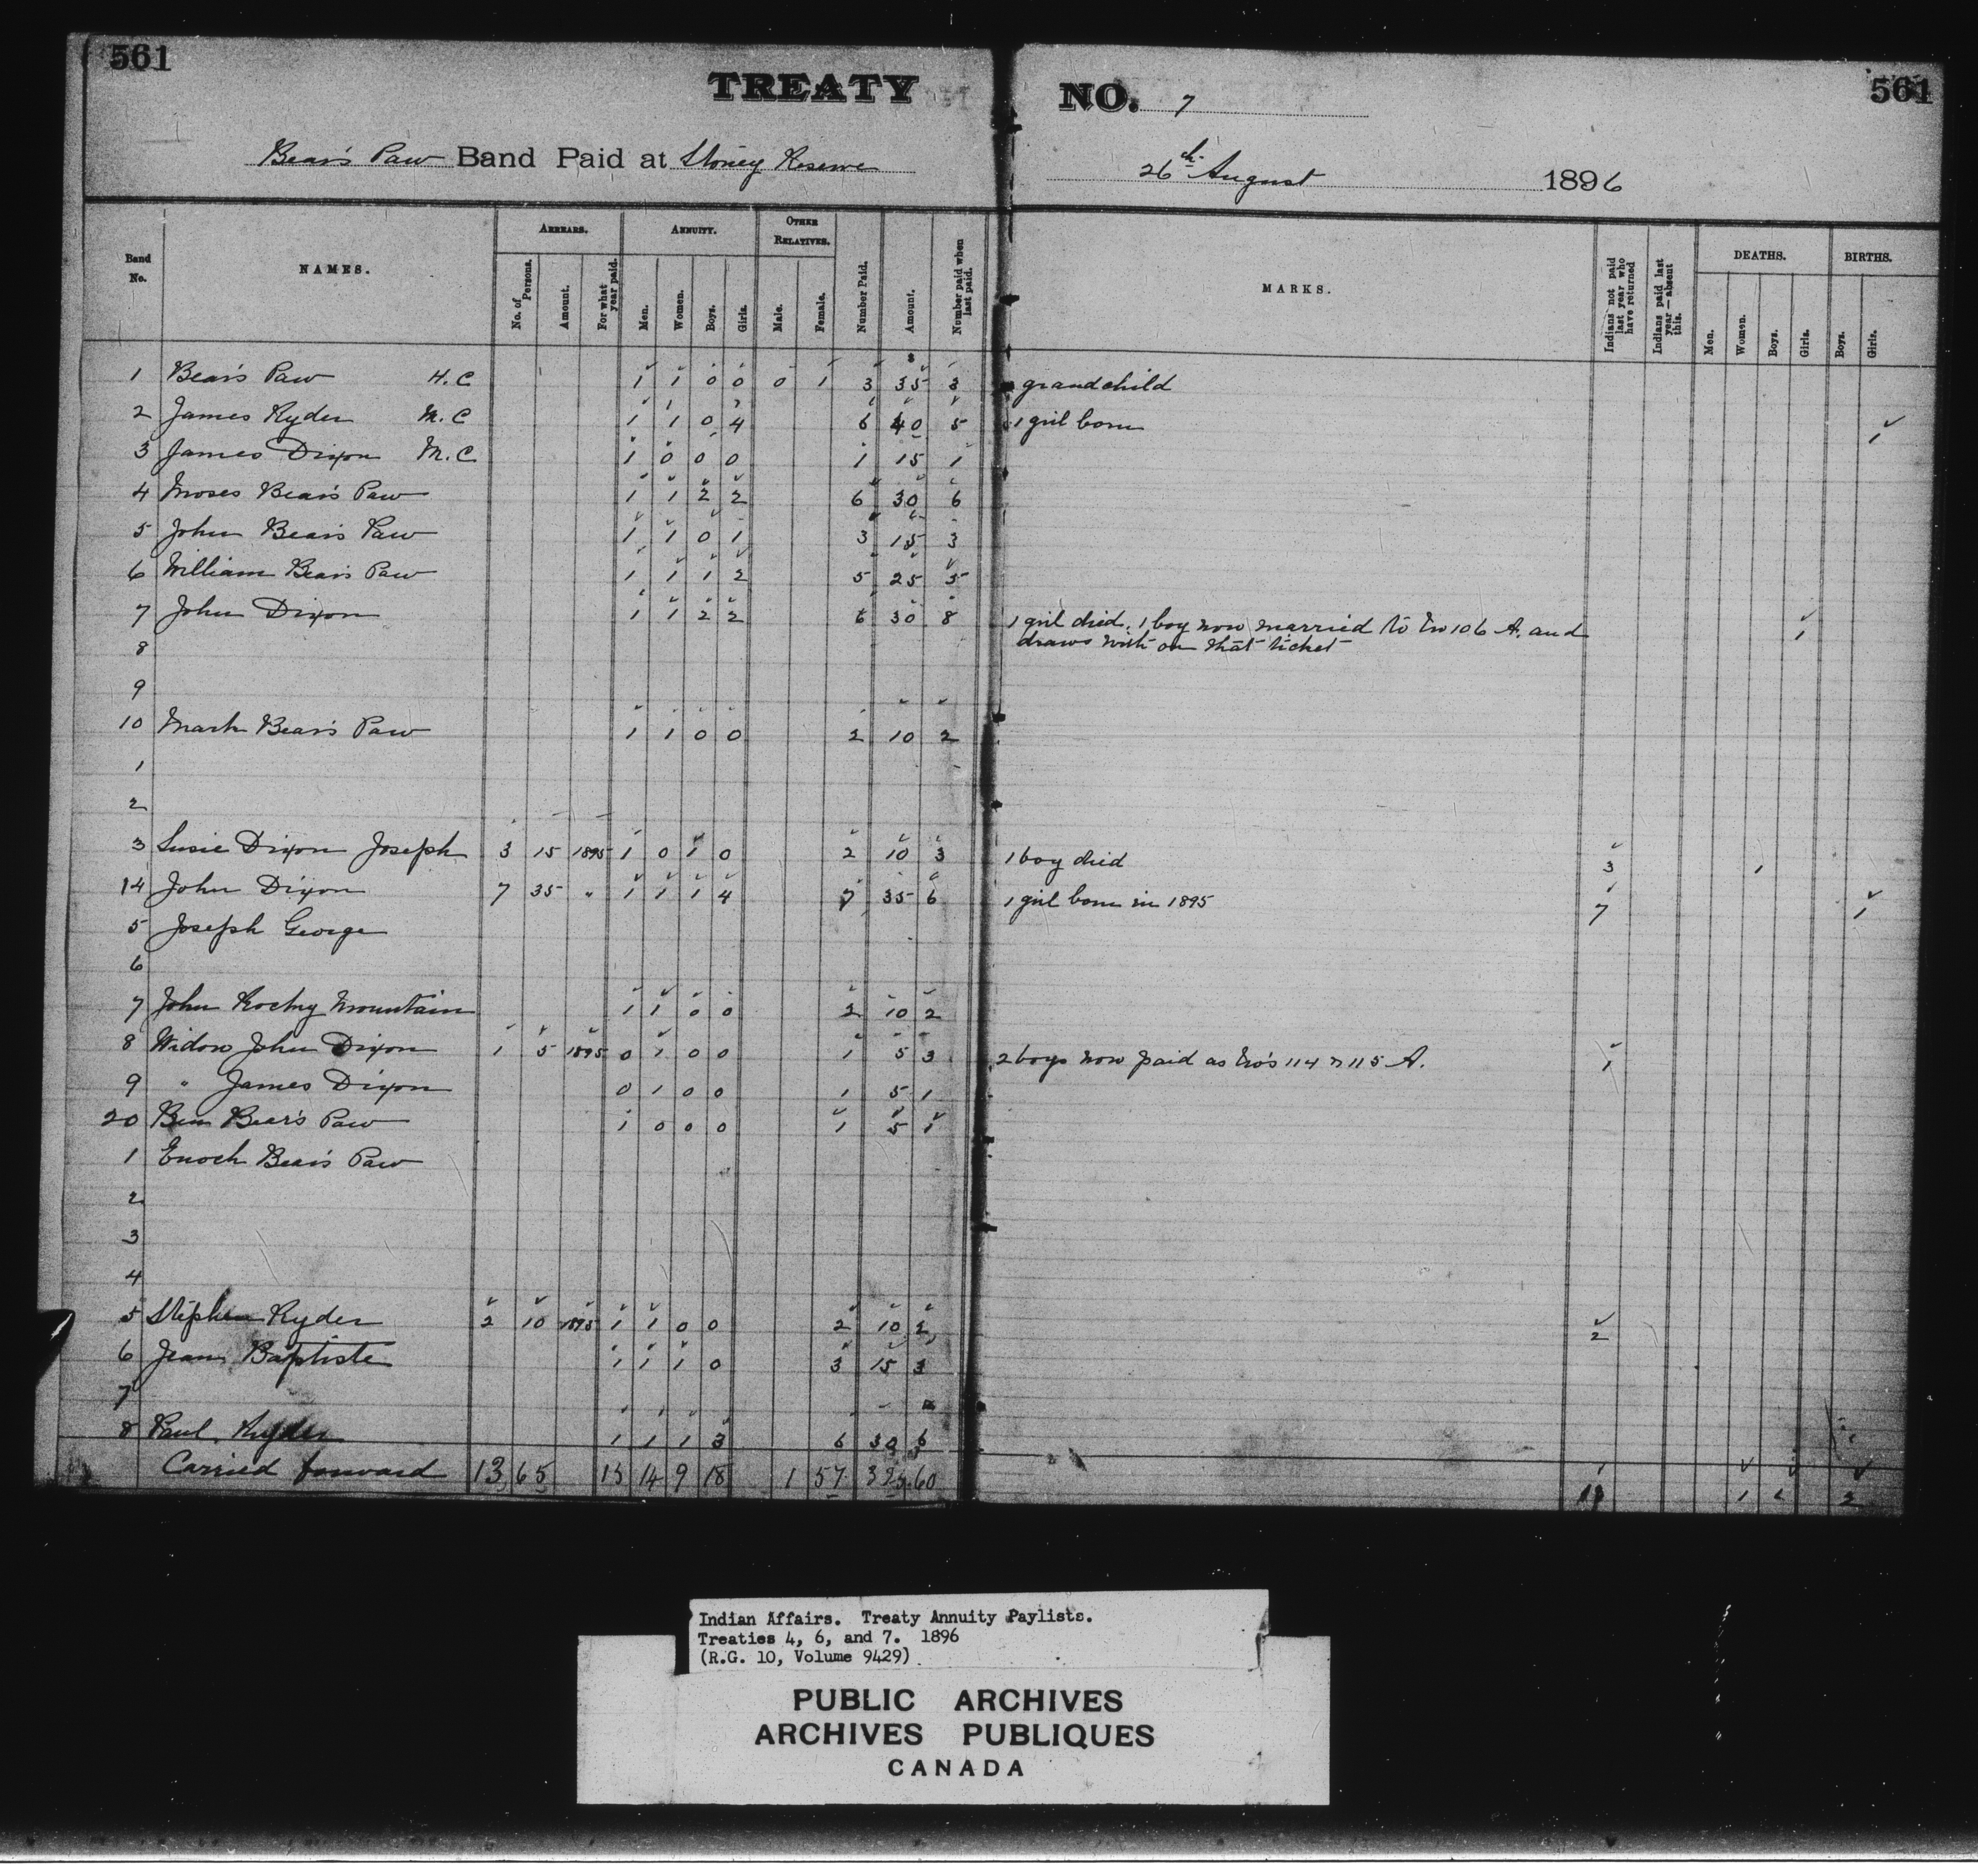 561 561
TREATY NO. 7
Bear's Paw Band Paid at Stoney Reserve 26th August 1896
Band No. NAMES. ARREARS. ANNUITY. OTHER RELATIVES. Number Paid. Amount. Number paid when last paid. MARKS. Indians not paid last year who have returned Indians paid last year—absent this. DEATHS. BIRTHS.
No. of Persons. Amount. For what year paid. Men. Women. Boys. Girls. Male. Female. Men. Women. Boys. Girls. Boys. Girls.
1 Bear's Paw H.C 1 1 0 0 0 1 3 35 3 grandchild
2 James Ryder M.C 1 1 0 4 6 40 5 1 girl born 1
3 James Dixon M.C 1 0 0 0 1 15 1
4 Moses Bear's Paw 1 1 2 2 6 30 6
5 John Bear's Paw 1 1 0 1 3 15 3
6 William Bear's Paw 1 1 1 2 5 25 5
7 John Dixon 1 1 2 2 6 30 8 1 girl died, 1 boy now married to No 106 A. and 1
8 draws with on that ticket
9
10 Mark Bear's Paw 1 1 0 0 2 10 2
1
2
3 Susie Dixon Joseph 3 15 1895 1 0 1 0 2 10 3 1 boy died 3 1
14 John Dixon 7 35 " 1 1 1 4 7 35 6 1 girl born in 1895 7 1
5 Joseph George
6
7 John Rocky Mountain 1 1 0 0 2 10 2
8 Widow John Dixon 1 5 1895 0 1 0 0 1 5 3 2 boys now paid as No's 114 & 115 A. 1
9 " James Dixon 0 1 0 0 1 5 1
20 Ben Bear's Paw 1 0 0 0 1 5 1
1 Enoch Bear's Paw
2
3
4
5 Stephen Ryder 2 10 1895 1 1 0 0 2 10 2 2
6 Jean Baptiste 1 1 1 0 3 15 3
7
8 Paul Ryder 1 1 1 3 6 30 6
Carried forward 13 65 15 14 9 18 1 57 60
Indian Affairs. Treaty Annuity Paylists.
Treaties 4, 6, and 7. 1896
(R.G. 10, Volume 9429)
PUBLIC ARCHIVES
ARCHIVES PUBLIQUES
CANADA